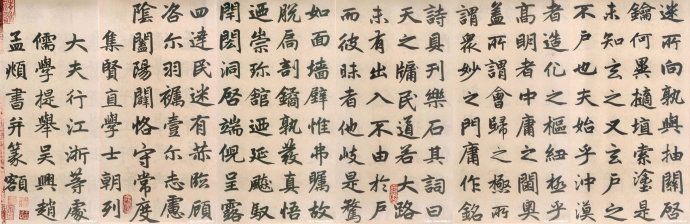 迷所向孰與抽關啓
鑰何異擿埴索塗是
未知玄之又玄戶之
不戶也夫始乎沖漠
者造化之樞紐極乎
高明者中庸之閫奧
蓋所謂會歸之極所
謂衆妙之門庸作銘
詩具刊樂石其詞
天之牖民道若大路
未有出入不由於戶
而彼昧者他岐是騖
如面墻壁惟弗矚故
脫扃剖鐍孰發真悟
迺崇珎館迺延飈馭
閈閎洞啓端倪呈露
四達民迷有赫臨顧
咨尒羽襹壹尒志慮
陰闔陽闢恪守常度
集賢直學士朝列
大夫行江浙等處
儒學提舉吳興趙
孟頫書并篆額